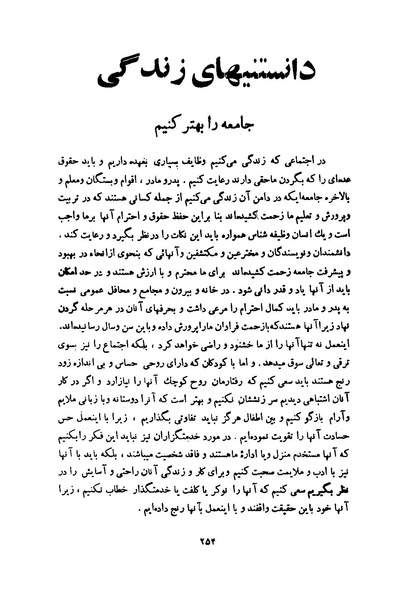 دانستنیهای زندگی
جامعه را بهتر کنیم
در اجتماعی که زندگی می‌کنیم وظایف بسیاری بعهده داریم و باید حقوق
عده‌ای را که بگردن ماحقی دارند رعایت کنیم . پدرو مادر ، اقوام وبستگان ومعلم و
بالاخره جامعه‌ایکه در دامن آن زندگی می‌کنیم از جمله کسانی هستند که در تربیت
وپرورش و تعلیم ما زحمت کشیده‌اند بنا بر این حفظ حقوق و احترام آنها برما واجب
است و یك انسان وظیفه شناس همواره باید این نکات را در نظر بگیرد و رعایت کند .
دانشمندان و نویسندگان و مخترعین و مکتشفین وآنهائی که بنحوی ازانحاء در بهبود
و پیشرفت جامعه زحمت کشیده‌اند برای ما محترم و با ارزش هستند و در حد امکان
باید از آنها یاد و قدر دانی شود . در خانه و بیرون و مجامع و محافل عمومی نسبت
به پدر و مادر باید کمال احترام را مرعی داشت و بحرفهای آنان در هر مرحله گردن
نهاد زیرا آنها هستندکه بازحمت فراوان ما را پرورش داده و باین سن وسال رسانده‌اند.
اینعمل نه تنها آنها را از ما خشنود و راضی خواهد کرد ، بلکه اجتماع را نیز بسوی
ترقی و تعالی سوق میدهد . و اما با کودکان که دارای روحی حساس و بی اندازه زود
رنج هستند باید سعی کنیم که رفتارمان روح کوچك آنها را نیازارد و اگر در کار
آنان اشتباهی دیدیم سر زنششان نکنیم و بهتر است که آنرا دوستانه وبا زبانی ملایم
وآرام بازگو کنیم و بین اطفال هرگز نباید تفاوتی بگذاریم ، زیرا با اینعمل حس
حسادت آنها را تقویت نموده‌ایم . در مورد خدمتگزاران نیز نباید این فکر را بکنیم
که آنها مستخدم منزل ویا ادارهٔ ماهستند و فاقد شخصیت میباشند ، بلکه باید با آنها
نیز با ادب و ملایمت صحبت کنیم و برای کار و زندگی آنان راحتی و آسایش را در
نظر بگیریم سعی کنیم که آنها را نوکر یا کلفت یا خدمتگذار خطاب نکنیم ، زیرا
آنها خود باین حقیقت واقفند و با اینعمل بآنها رنج داده‌ایم .
۲۵۴